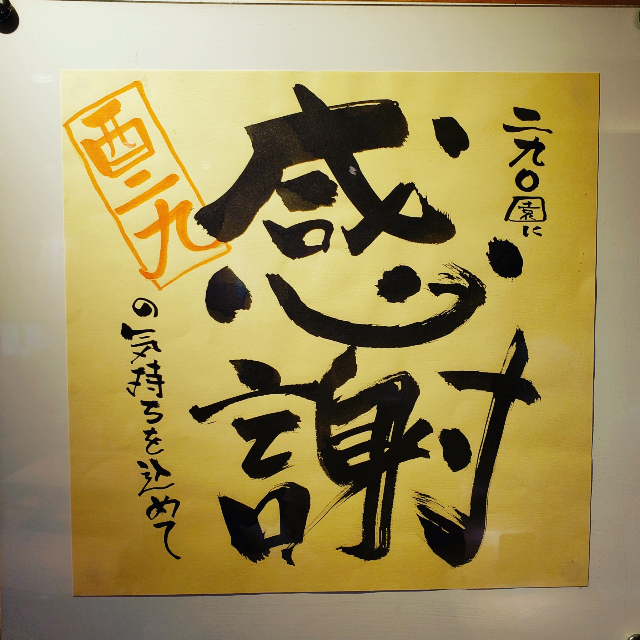 二九〇園に
感謝
の気持ちを込めて
酉二九